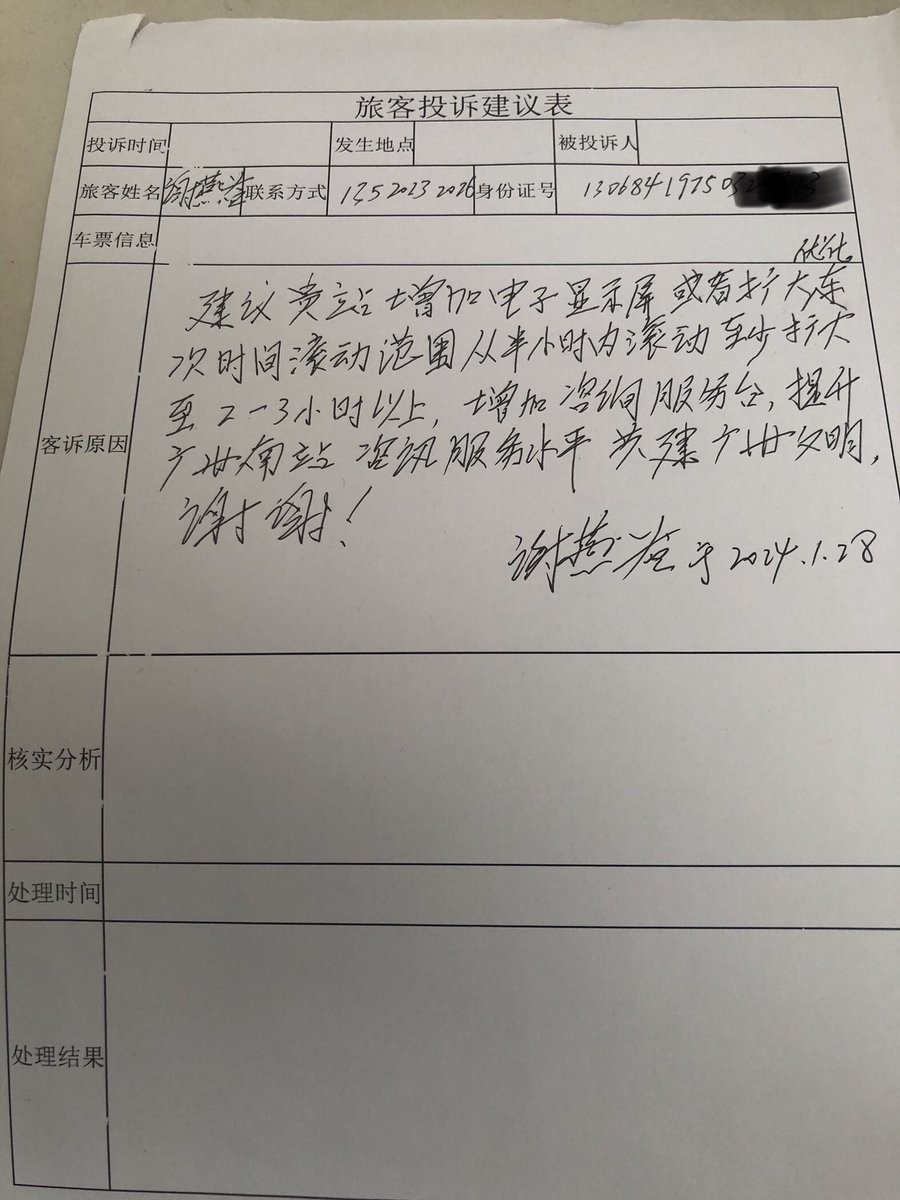 旅客投诉建议表
投诉时间 发生地点 被投诉人
旅客姓名 谢燕 联系方式 13520232026 身份证号 130684197503
车票信息
优化
建议贵站增加电子显示屏或者扩大车
次时间滚动范围从半小时内滚动至少扩大
至2-3小时以上，增加咨询服务台，提升
客诉原因
广州南站咨询服务水平 共建广州文明，
谢谢！
谢燕 于2024.1.28
核实分析
处理时间
处理结果